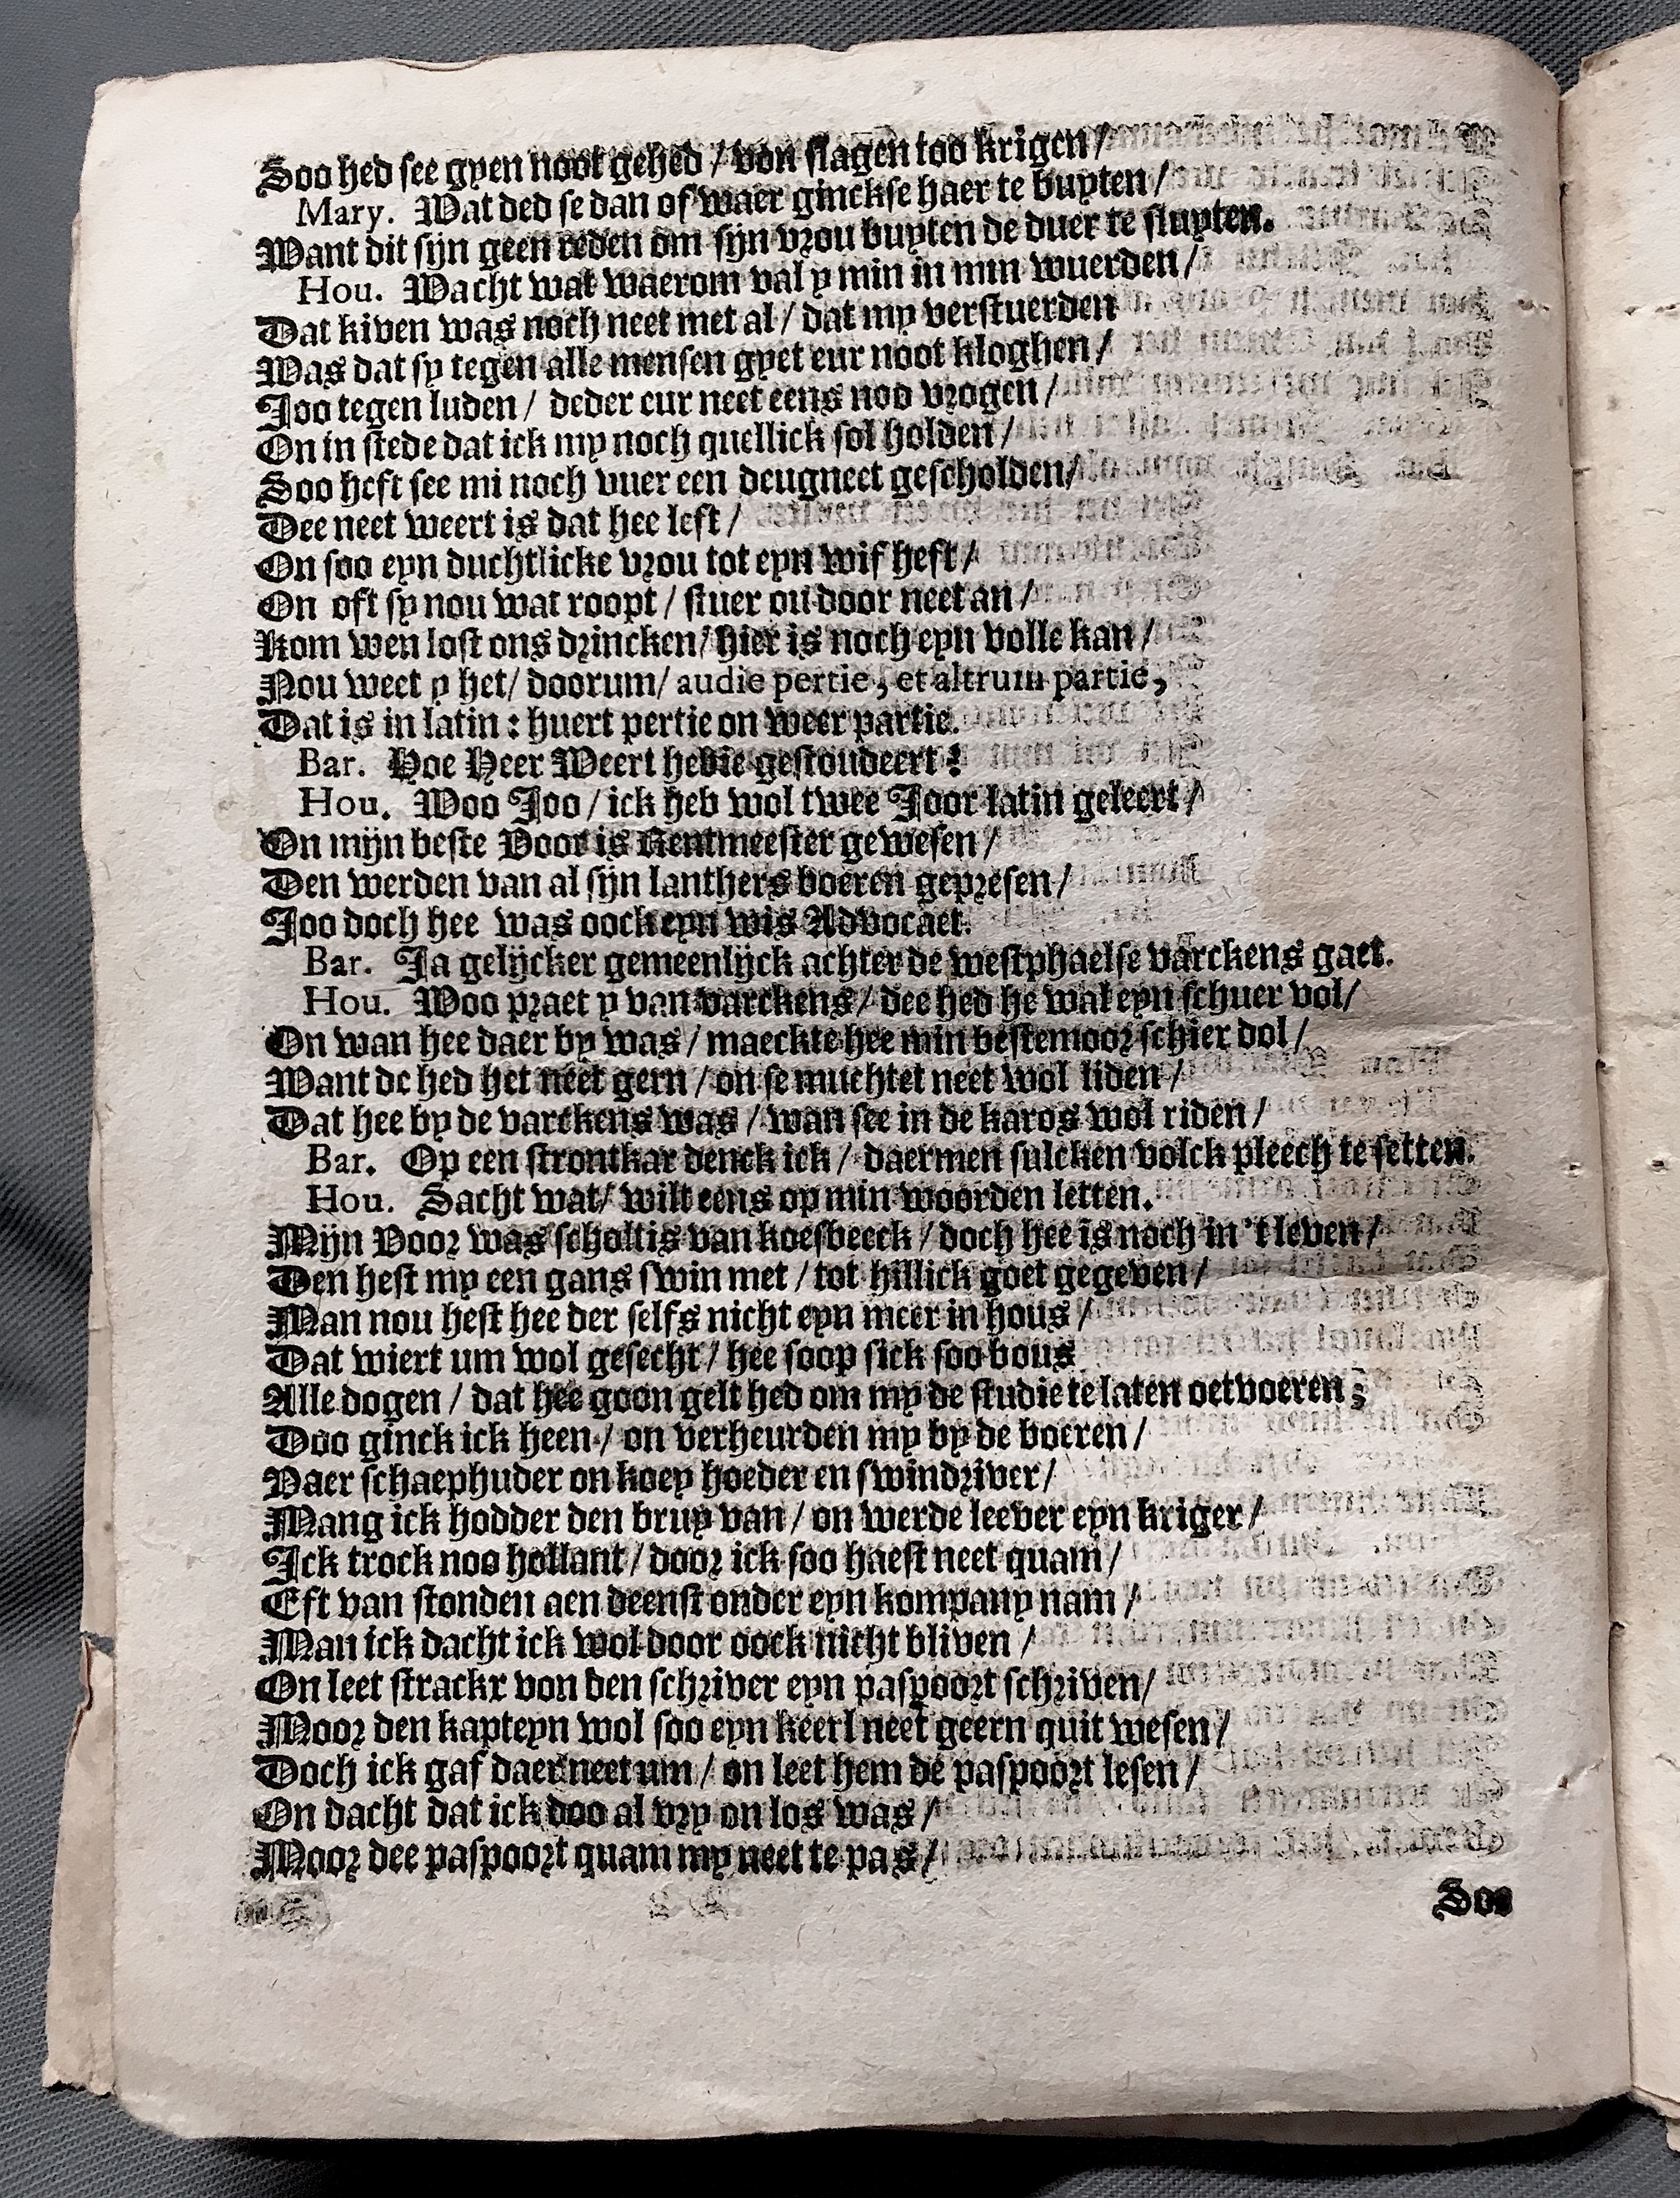 Soo hed see gyen noot gehed / von slagen too krigen /
Mary. Wat ded se dan of waer ginckse haer te buyten /
Want dit sijn geen reden om sijn vrou buyten de duer te sluyten.
Hou. Wacht wat waerom val y min in min wuerden /
Dat kiven was noch neet met al / dat my verstuerden
Was dat sy tegen alle mensen gyet eur noot kloghen /
Joo tegen luden / deder eur neet eens noo vrogen /
On in stede dat ick my noch quellick sol holden /
Soo heft see mi noch vuer een deugneet gescholden /
Dee neet weert is dat hee left /
On soo eyn duchtlicke vrou tot eyn wif heft /
On oft sy nou wat roopt / stuer ou door neet an /
Kom wen lost ons drincken / hier is noch eyn volle kan /
Nou weet y het / doorum / audie pertie, et altrum partie,
Dat is in latin : huert pertie on weer partie.
Bar. Hoe Heer Weert hebie gestoudeert ?
Hou. Woo Joo / ick heb wol twee Joor latin geleert /
On mijn beste Voor is Rentmeester gewesen /
Den werden van al sijn lanthers boeren gepresen /
Joo doch hee was oock eyn wis Advocaet.
Bar. Ja gelijcker gemeenlijck achter de westphaelse varckens gaet.
Hou. Woo praet y van varckens / dee hed he wal eyn schuer vol /
On wan hee daer by was / maeckte hee min bestemoor schier dol /
Want de hed het neet gern / on se muchtet neet wol liden /
Dat hee by de varckens was / wan see in de karos wol riden /
Bar. Op een strontkar denck ick / daermen sulcken volck pleech te setten.
Hou. Sacht wat / wilt eens op min woorden letten.
Mijn Voor was scholtis van koesbeeck / doch hee is noch in 't leven /
Den heft my een gans swin met / tot hillick goet gegeven /
Man nou heft hee der selfs nicht eyn meer in hous /
Dat wiert um wol gesecht / hee soop sick soo bous
Alle dogen / dat hee goon gelt hed om my de studie te laten oetvoeren ;
Doo ginck ick heen / on verheurden my by de boeren /
Vaer schaephuder on koey hoeder en swindriver /
Mang ick hodder den bruy van / on werde leever eyn kriger /
Ick trock noo hollant / door ick soo haest neet quam /
Eft van stonden aen deenst onder eyn kompany nam /
Man ick dacht ick wol door oock nicht bliven /
On leet strackx von den schriver eyn paspoort schriven /
Moor den kapteyn wol soo eyn keerl neet geern quit wesen /
Doch ick gaf daer neet um / on leet hem de paspoort lesen /
On dacht dat ick doo al vry on los was /
Moor dee paspoort quam my neet te pas /
Soo